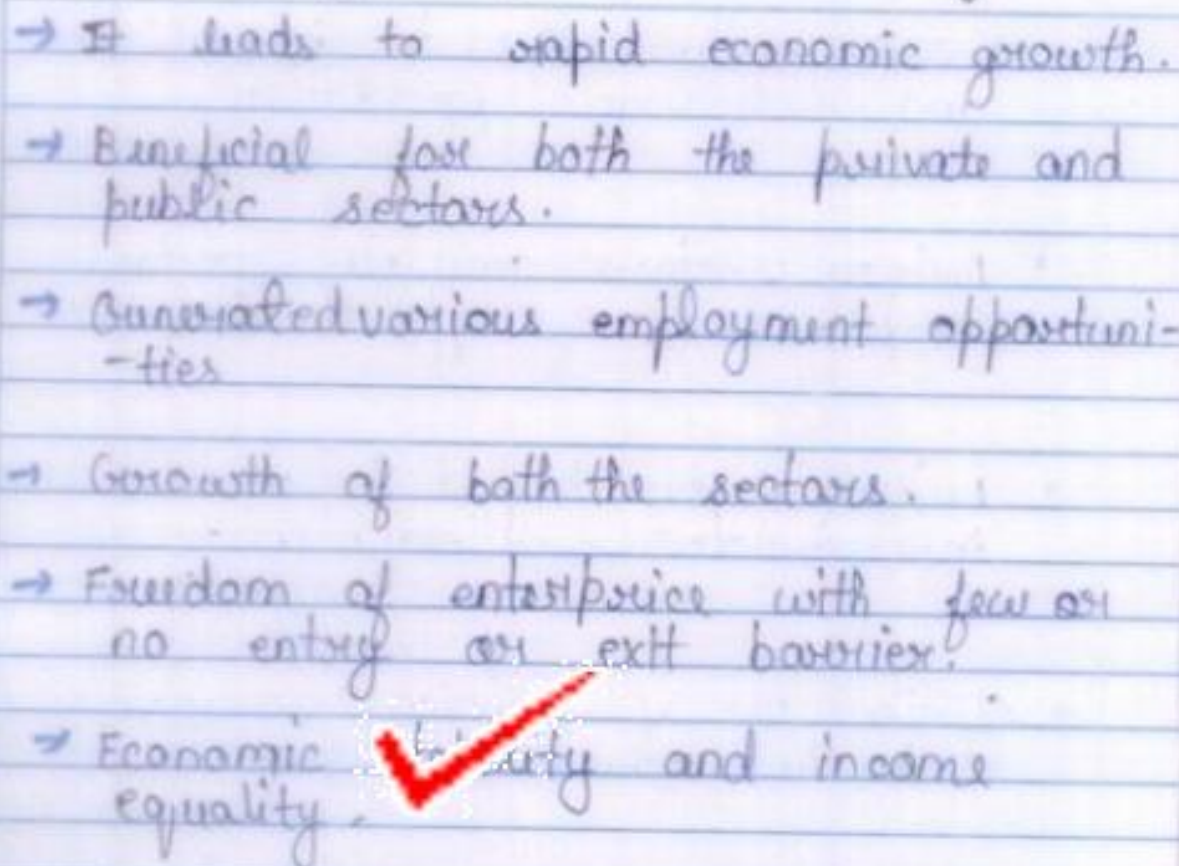 → It leads to rapid economic growth.
→ Beneficial for both the private and
public sectors.
→ Generated various employment opportuni-
-ties
→ Growth of both the sectors.
→ Freedom of enterprice with few or
no entry or exit barrier.
→ Economic and income
equality.